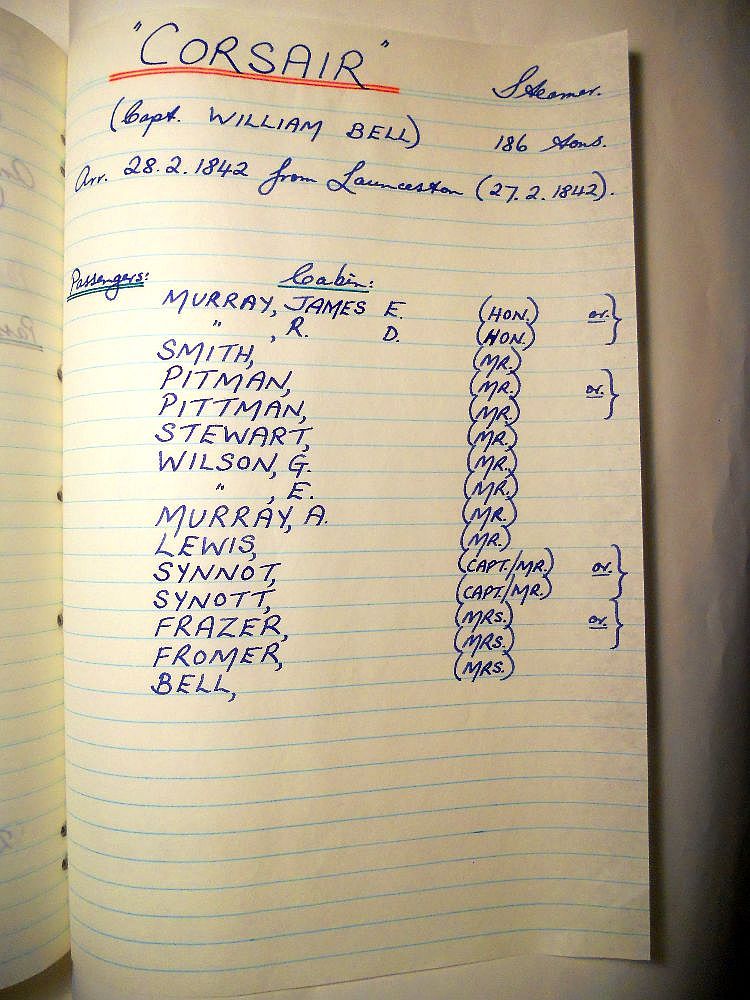 "CORSAIR" Steamer.
(Capt. WILLIAM BELL) 186 tons.
Arr. 28.2.1842 from Launceston (27.2.1842).
Passengers: Cabin:
MURRAY, JAMES E. (HON.) or. }
" , R. D. (HON.)
SMITH, (MR.)
PITMAN, (MR.) or. }
PITTMAN, (MR.)
STEWART, (MR.)
WILSON, G. (MR.)
" , E. (MR.)
MURRAY, A. (MR.)
LEWIS, (MR.)
SYNNOT, (CAPT./MR.) or. }
SYNOTT, (CAPT./MR.)
FRAZER, (MRS.) or. }
FROMER, (MRS.)
BELL, (MRS.)